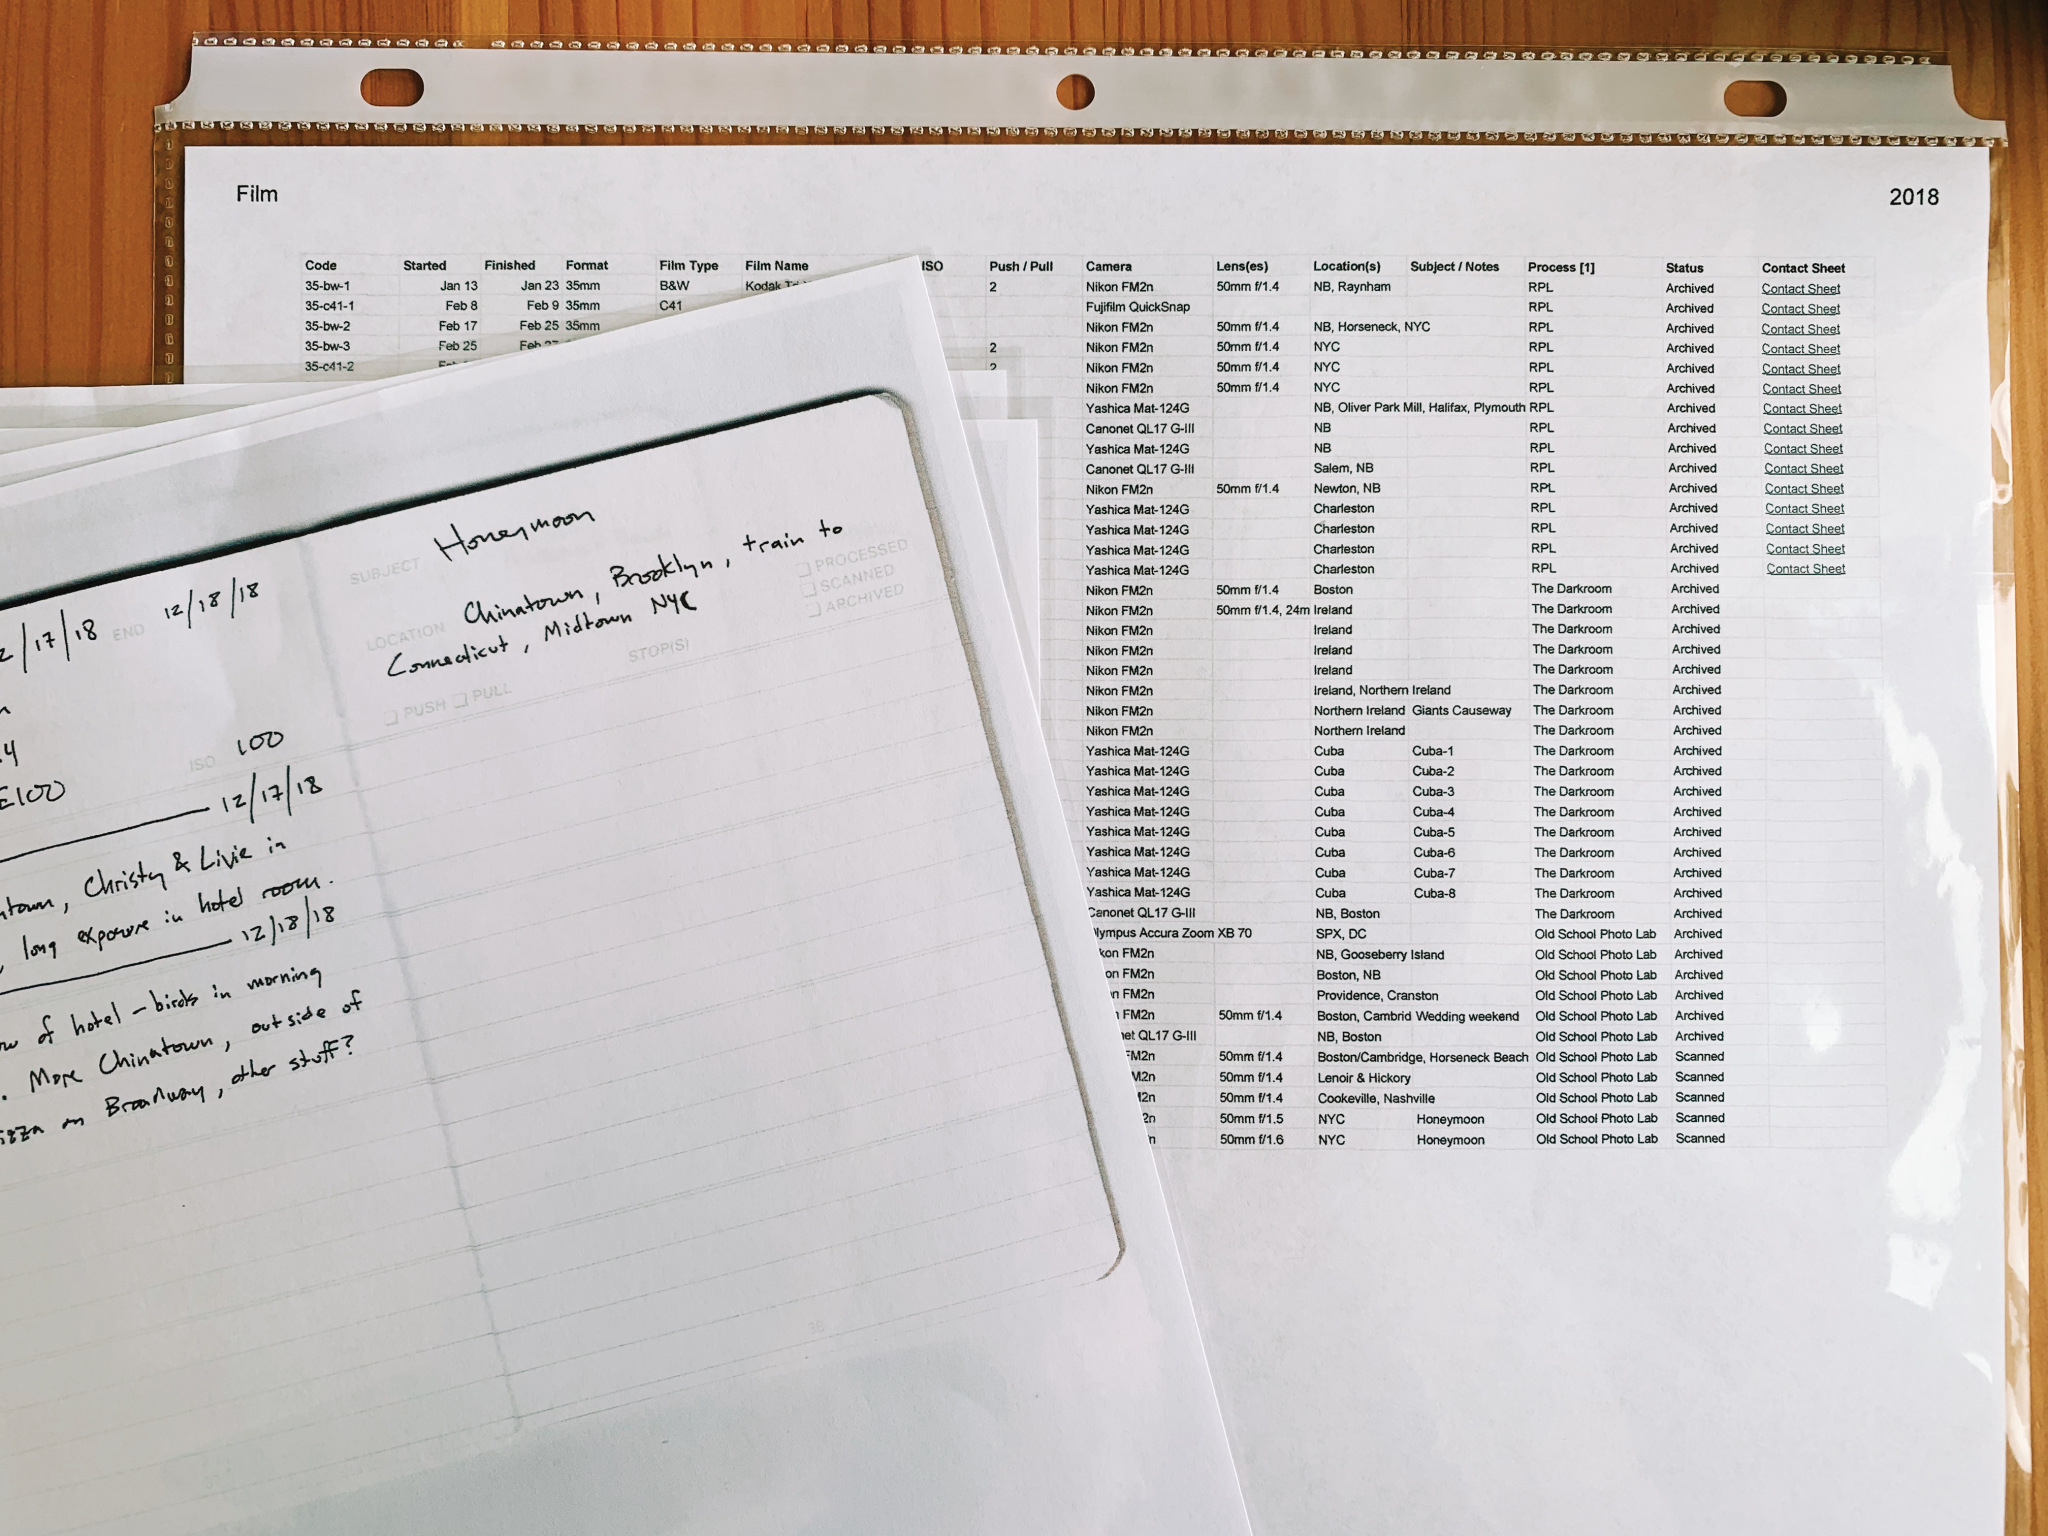 Film 2018
Code Started Finished Format Film Type Film Name ISO Push / Pull Camera Lens(es) Location(s) Subject / Notes Process [1] Status Contact Sheet
35-bw-1 Jan 13 Jan 23 35mm B&W Kodak 2 Nikon FM2n 50mm f/1.4 NB, Raynham RPL Archived Contact Sheet
35-c41-1 Feb 8 Feb 9 35mm C41 Fujifilm QuickSnap RPL Archived Contact Sheet
35-bw-2 Feb 17 Feb 25 35mm Nikon FM2n 50mm f/1.4 NB, Horseneck, NYC RPL Archived Contact Sheet
35-bw-3 Feb 25 Feb 2 Nikon FM2n 50mm f/1.4 NYC RPL Archived Contact Sheet
35-c41-2 2 Nikon FM2n 50mm f/1.4 NYC RPL Archived Contact Sheet
Nikon FM2n 50mm f/1.4 NYC RPL Archived Contact Sheet
Yashica Mat-124G NB, Oliver Park Mill, Halifax, Plymouth RPL Archived Contact Sheet
Canonet QL17 G-III NB RPL Archived Contact Sheet
Yashica Mat-124G NB RPL Archived Contact Sheet
Canonet QL17 G-III Salem, NB RPL Archived Contact Sheet
Nikon FM2n 50mm f/1.4 Newton, NB RPL Archived Contact Sheet
Yashica Mat-124G Charleston RPL Archived Contact Sheet
Yashica Mat-124G Charleston RPL Archived Contact Sheet
Yashica Mat-124G Charleston RPL Archived Contact Sheet
Yashica Mat-124G Charleston RPL Archived Contact Sheet
Nikon FM2n 50mm f/1.4 Boston The Darkroom Archived
Nikon FM2n 50mm f/1.4, 24m Ireland The Darkroom Archived
Nikon FM2n Ireland The Darkroom Archived
Nikon FM2n Ireland The Darkroom Archived
Nikon FM2n Ireland The Darkroom Archived
Nikon FM2n Ireland, Northern Ireland The Darkroom Archived
Nikon FM2n Northern Ireland Giants Causeway The Darkroom Archived
Nikon FM2n Northern Ireland The Darkroom Archived
Yashica Mat-124G Cuba Cuba-1 The Darkroom Archived
Yashica Mat-124G Cuba Cuba-2 The Darkroom Archived
Yashica Mat-124G Cuba Cuba-3 The Darkroom Archived
Yashica Mat-124G Cuba Cuba-4 The Darkroom Archived
Yashica Mat-124G Cuba Cuba-5 The Darkroom Archived
Yashica Mat-124G Cuba Cuba-6 The Darkroom Archived
Yashica Mat-124G Cuba Cuba-7 The Darkroom Archived
Yashica Mat-124G Cuba Cuba-8 The Darkroom Archived
Canonet QL17 G-III NB, Boston The Darkroom Archived
lympus Accura Zoom XB 70 SPX, DC Old School Photo Lab Archived
kon FM2n NB, Gooseberry Island Old School Photo Lab Archived
on FM2n Boston, NB Old School Photo Lab Archived
n FM2n Providence, Cranston Old School Photo Lab Archived
FM2n 50mm f/1.4 Boston, Cambrid Wedding weekend Old School Photo Lab Archived
et QL17 G-III NB, Boston Old School Photo Lab Archived
FM2n 50mm f/1.4 Boston/Cambridge, Horseneck Beach Old School Photo Lab Scanned
M2n 50mm f/1.4 Lenoir & Hickory Old School Photo Lab Scanned
2n 50mm f/1.4 Cookeville, Nashville Old School Photo Lab Scanned
2n 50mm f/1.5 NYC Honeymoon Old School Photo Lab Scanned
n 50mm f/1.6 NYC Honeymoon Old School Photo Lab Scanned
2/17/18 END 12/18/18
n
.4
E100 ISO 100
12/17/18
ntown, Christy & Livie in
, long exposure in hotel room.
12/18/18
ow of hotel - birds in morning
. More Chinatown, outside of
izza on Broadway, other stuff?
SUBJECT Honeymoon
LOCATION Chinatown, Brooklyn, train to
Connecticut, Midtown NYC
PROCESSED
SCANNED
ARCHIVED
PUSH PULL STOP(S)
36